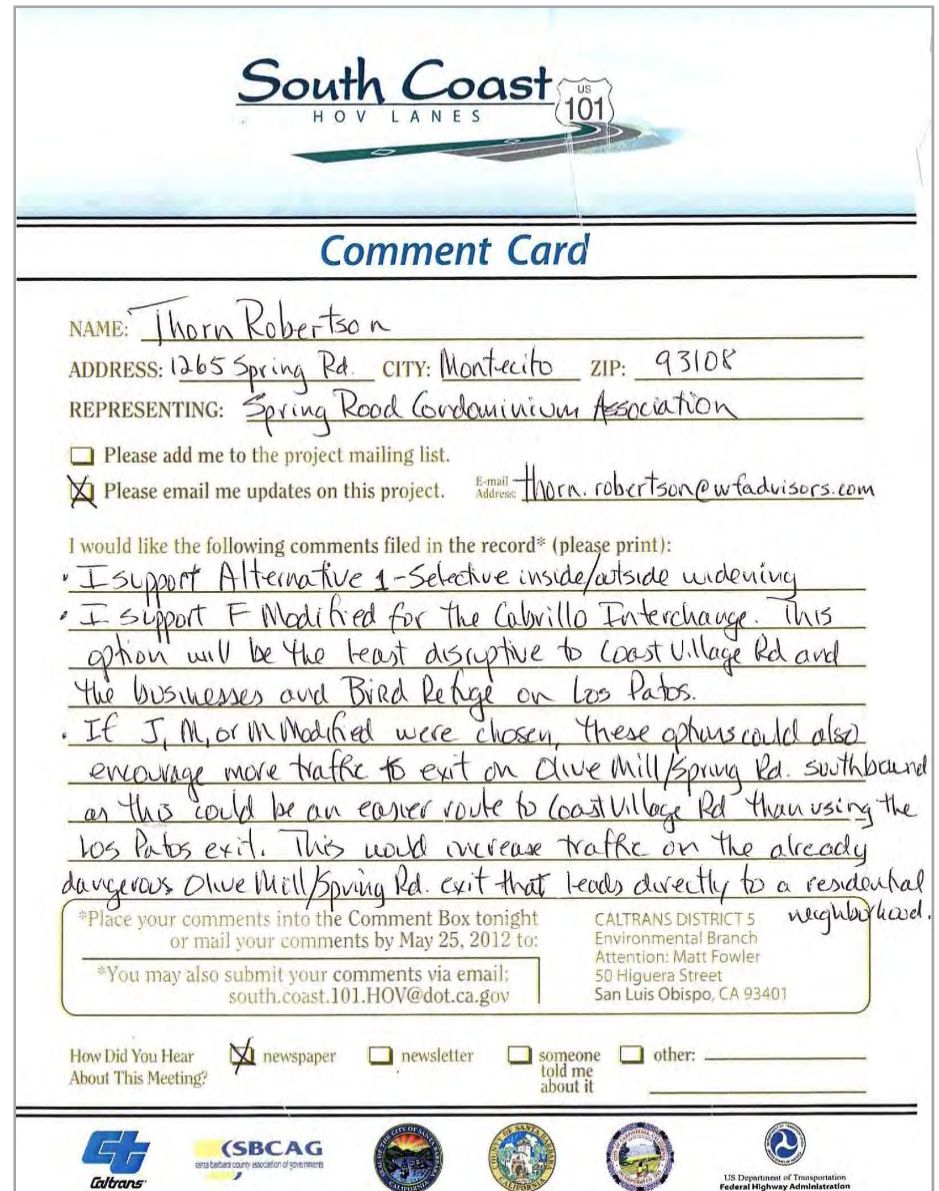 South Coast
HOV LANES
US
101
Comment Card
NAME: Thorn Robertson
ADDRESS: 1265 Spring Rd. CITY: Montecito ZIP: 93108
REPRESENTING: Spring Road Condominium Association
Please add me to the project mailing list.
Please email me updates on this project. E-mail Address: thorn.robertson@wfadvisors.com
I would like the following comments filed in the record* (please print):
• I support Alternative 1 - Selective inside/outside widening
• I support F Modified for the Cabrillo Interchange. This
option will be the least disruptive to Coast Village Rd and
the businesses and Bird Refuge on Los Patos.
• If J, M, or M Modified were chosen, these options could also
encourage more traffic to exit on Olive Mill/Spring Rd. southbound
as this could be an easier route to Coast Village Rd than using the
Los Patos exit. This would increase traffic on the already
dangerous Olive Mill/Spring Rd. exit that leads directly to a residential
neighborhood.
*Place your comments into the Comment Box tonight
or mail your comments by May 25, 2012 to:
*You may also submit your comments via email:
south.coast.101.HOV@dot.ca.gov
CALTRANS DISTRICT 5
Environmental Branch
Attention: Matt Fowler
50 Higuera Street
San Luis Obispo, CA 93401
How Did You Hear
About This Meeting?
newspaper
newsletter
someone
told me
about it
other:
Caltrans
SBCAG
santa barbara county association of governments
US Department of Transportation
Federal Highway Administration